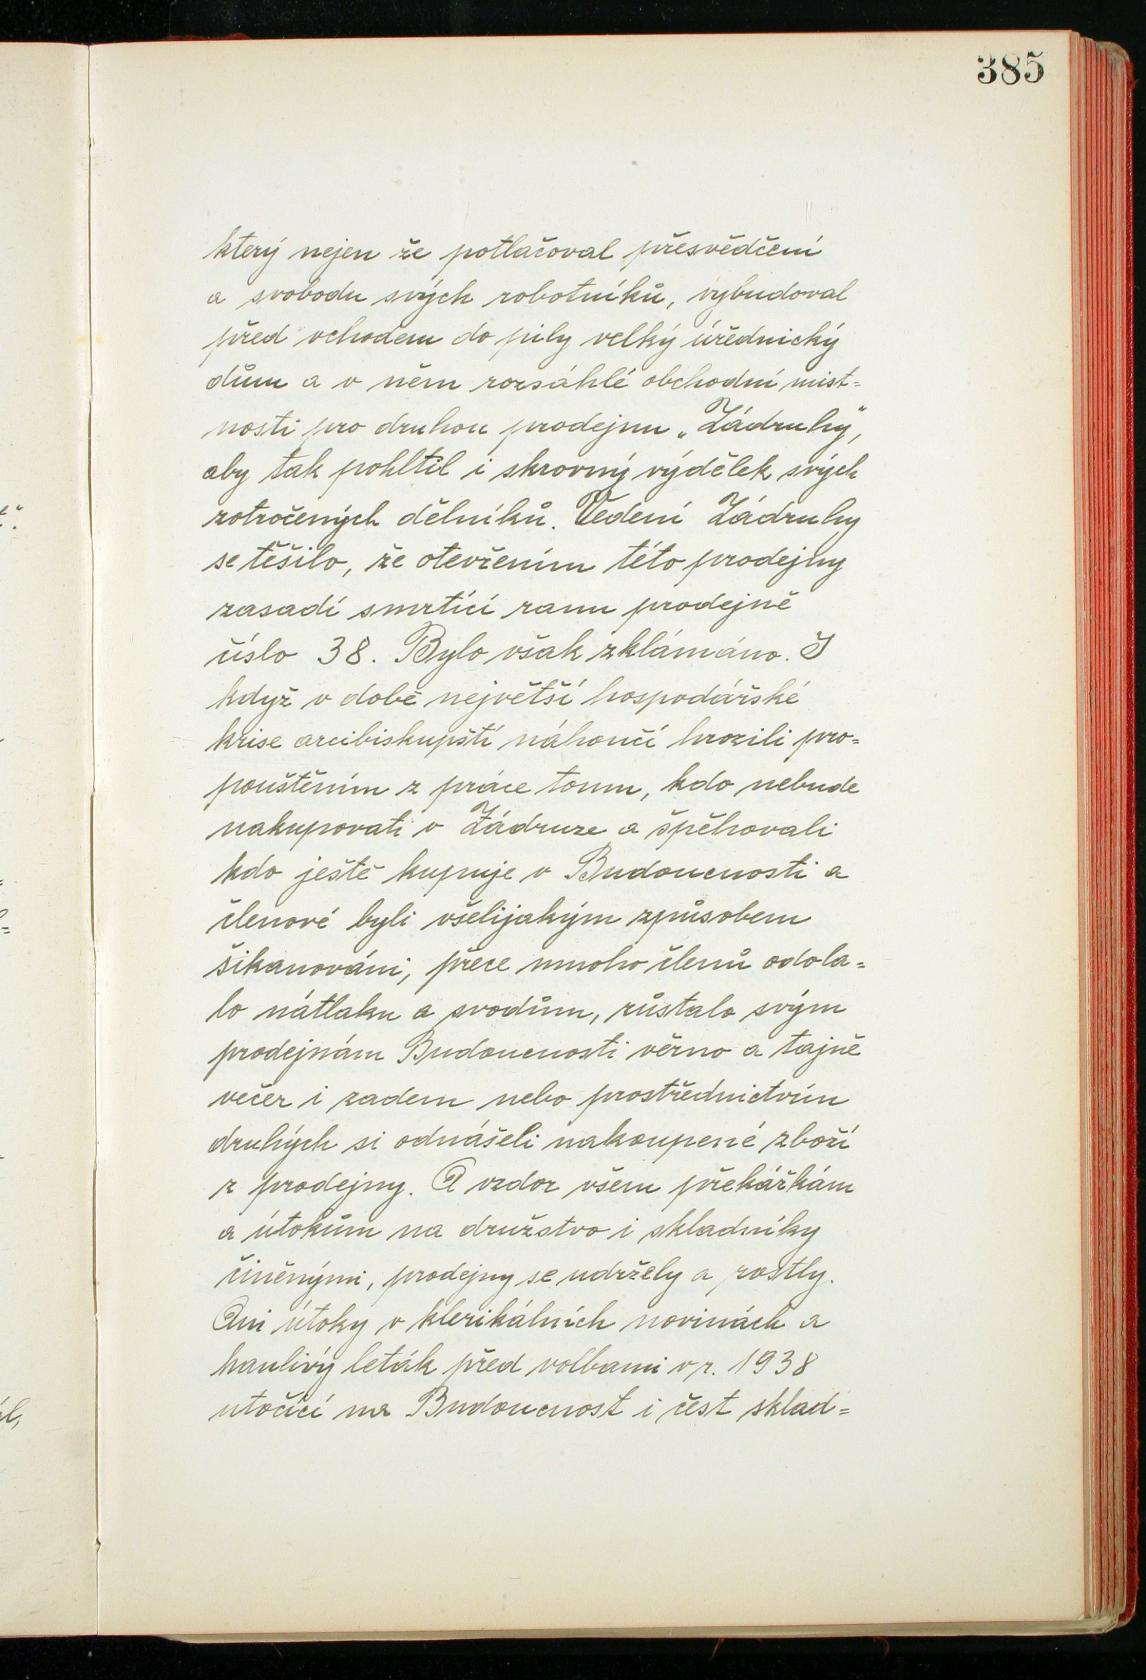 385
který nejen že potlačoval přesvědčení
a svobodu svých robotníků, vybudoval
před vchodem do pily velký úřednický
dům a v něm rozsáhlé obchodní míst=
nosti pro druhou prodejnu „Zádruhy",
aby tak pohltil i skrovný výdělek svých
zotročených dělníků. Vedení Zádruhy
se těšilo, že otevřením této prodejny
zasadí smrtící ranu prodejně
číslo 38. Bylo však zklámáno. I
když v době největší hospodářské
krise arcibiskupští náhončí hrozili pro=
pouštěním z práce tomu, kdo nebude
nakupovati v Zádruze a špěhovali
kdo ještě kupuje v Budoucnosti a
členové byli všelijakým způsobem
šikanováni, přece mnoho členů odola=
lo nátlaku a svodům, zůstalo svým
prodejnám Budoucnosti věrno a tajně
večer i zadem nebo prostřednictvím
druhých si odnášeli nakoupené zboží
z prodejny. A vzdor všem překážkám
a útokům na družstvo i skladníky
činěnými, prodejny se udržely a rostly.
Ani útoky v klerikálních novinách a
hanlivý leták před volbami v r. 1938
útočící na Budoucnost i čest sklad=